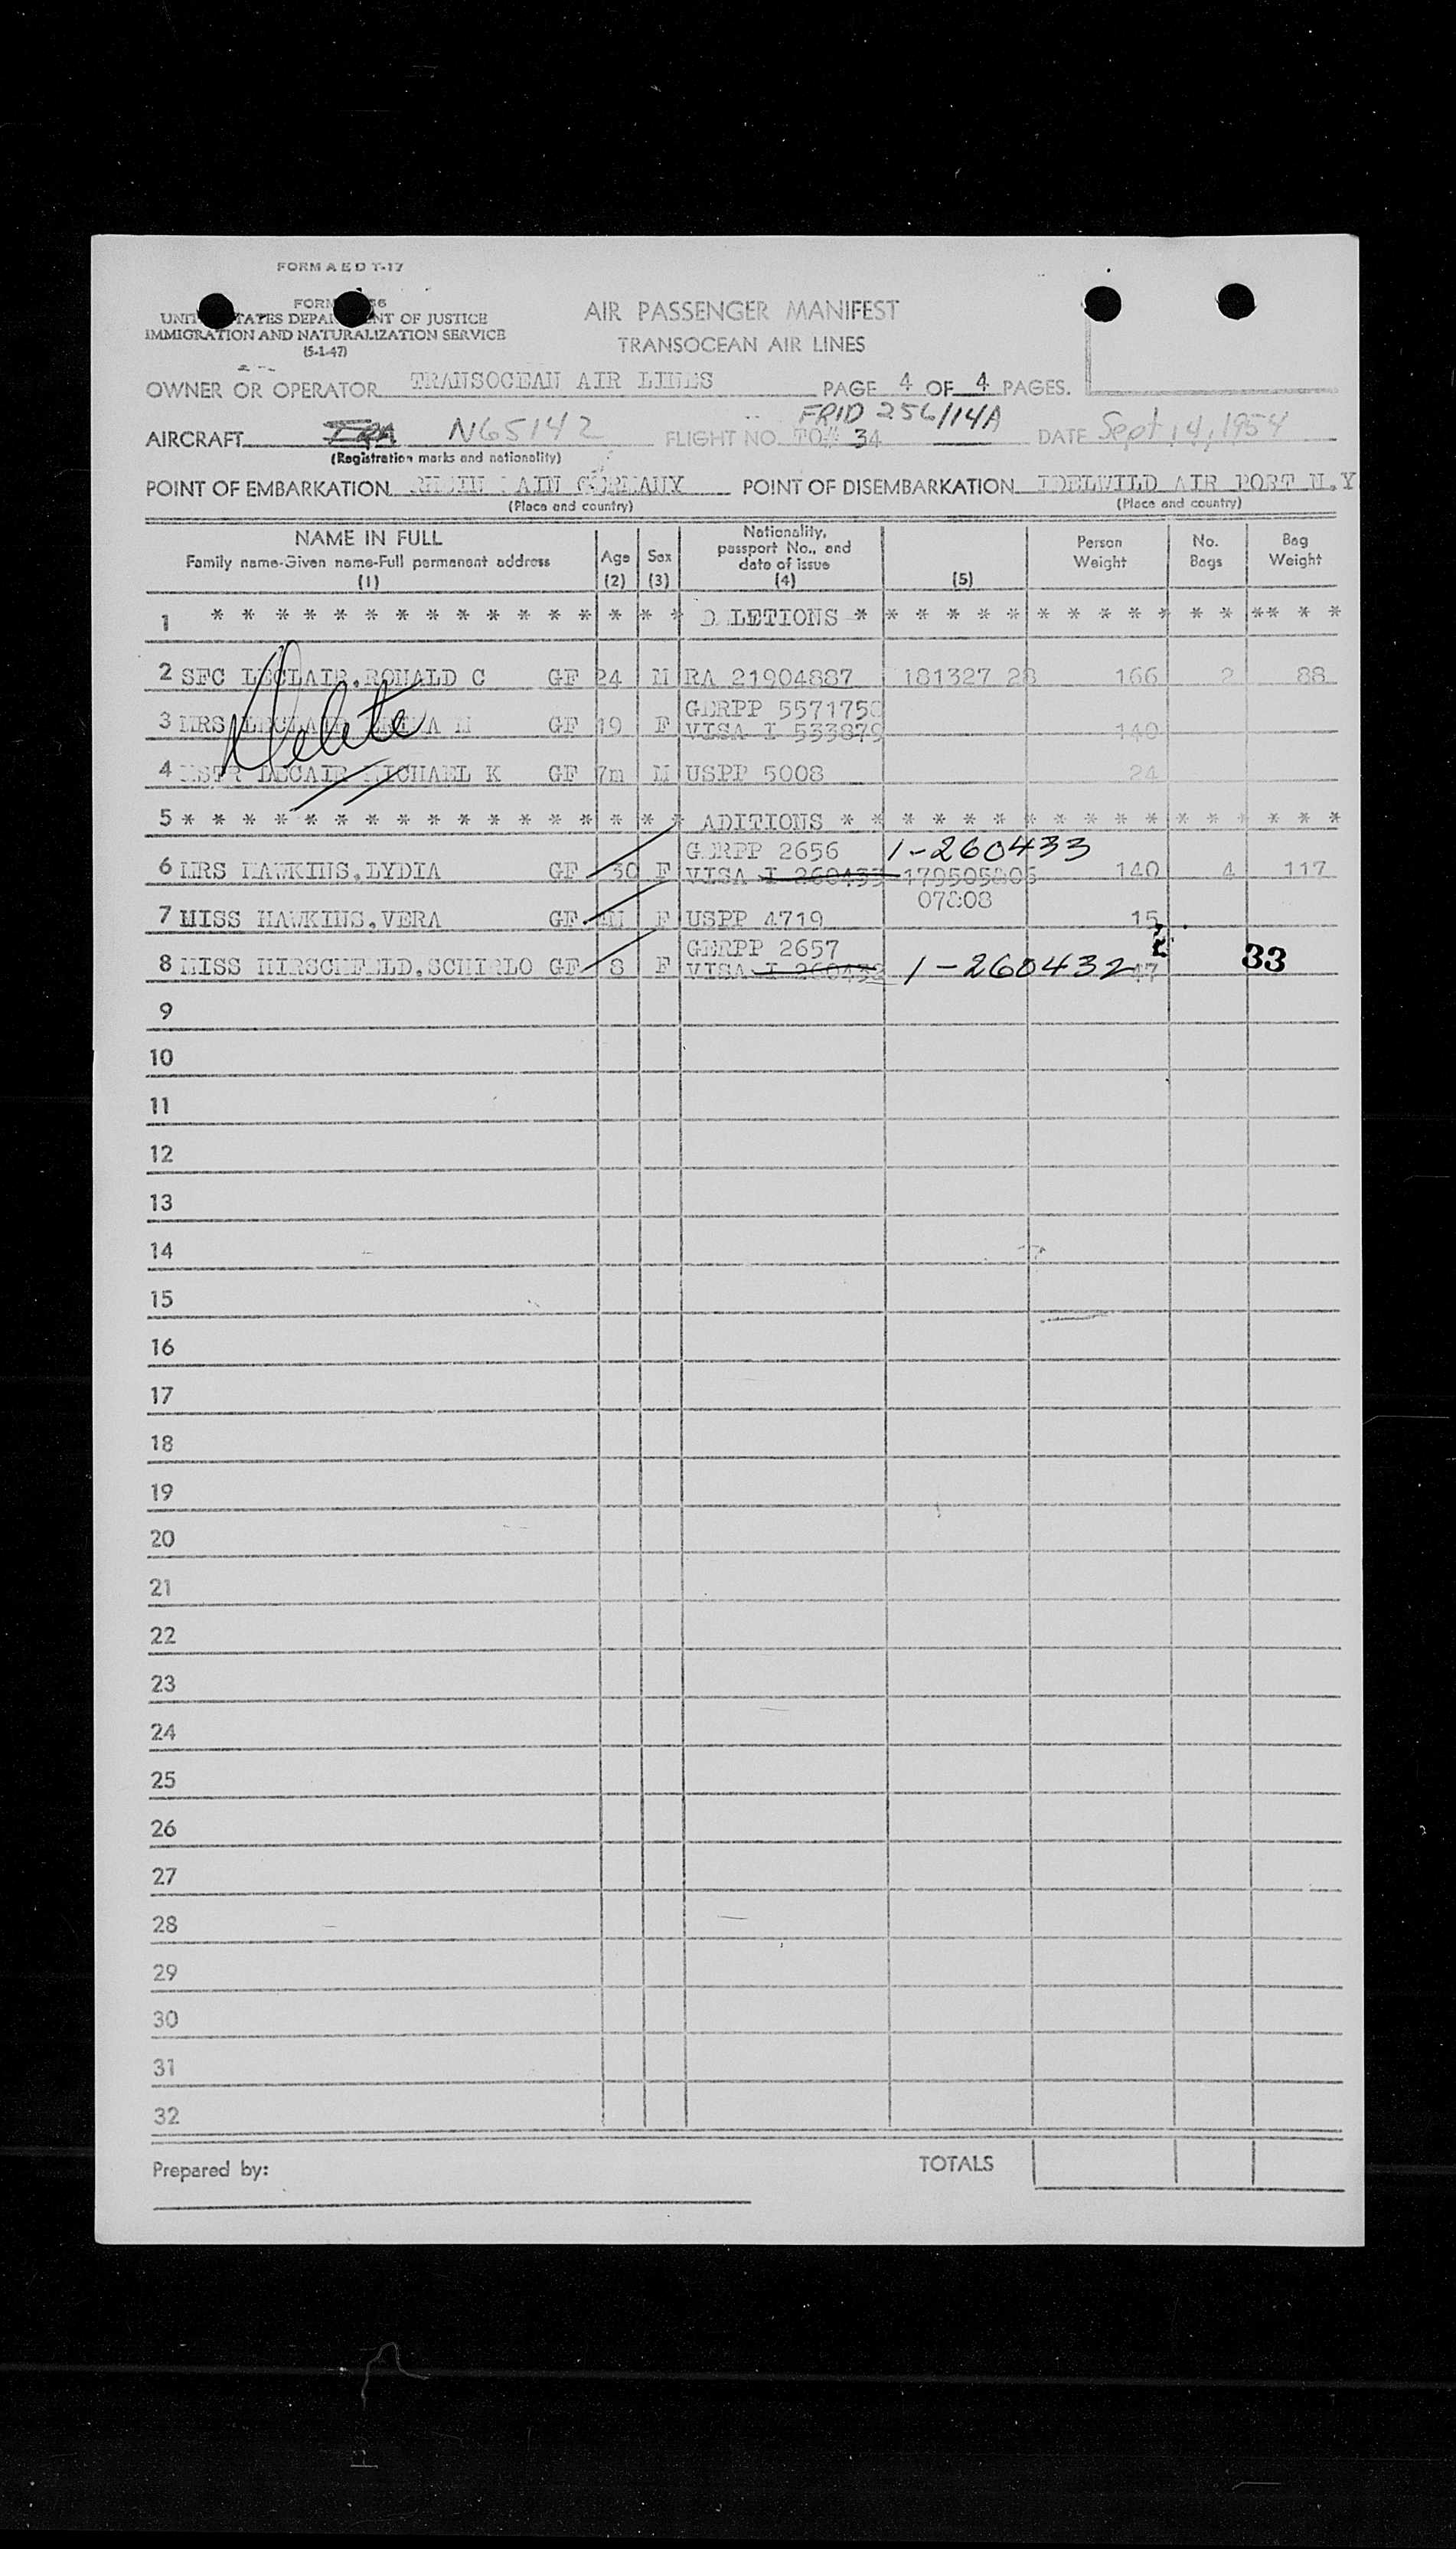 FORM A E D T-17
FORM
UNITED STATES DEPARTMENT OF JUSTICE
IMMIGRATION AND NATURALIZATION SERVICE
(5-1-47)
AIR PASSENGER MANIFEST
TRANSOCEAN AIR LINES
OWNER OR OPERATOR TRANSOCEAN AIR LINES PAGE 4 OF 4 PAGES.
FRID 256/14A
AIRCRAFT N65142 FLIGHT NO. TO# 34 DATE Sept 14, 1954
(Registration marks and nationality)
POINT OF EMBARKATION RHEIN MAIN GERMANY POINT OF DISEMBARKATION IDELWILD AIR PORT N.Y
(Place and country) (Place and country)
NAME IN FULL
Family name-Given name-Full permanent address
(1)
Age
(2)
Sex
(3)
Nationality,
passport No., and
date of issue
(4)
(5)
Person
Weight
No.
Bags
Bag
Weight
1 * * * * * * * * * * * * * * * * D LETIONS * * * * * * * * * * * * * ** * *
2 SFC LECLAIR, RONALD C GF 24 M RA 21904887 181327 28 166 2 88
GERPP 5571750
3 MRS LECLAIR M GF 19 F VISA I 533879 140
4 MSTR LECAIR MICHAEL K GF 7m M USPP 5008 24
Delete
5 * * * * * * * * * * * * * * * * * ADITIONS * * * * * * * * * * * * * * * * *
GERPP 2656 1-260433
6 MRS HAWKINS, LYDIA GF 30 F VISA I 260433 179505806 140 4 117
07808
7 MISS HAWKINS, VERA GF F USPP 4719 15
GERPP 2657 2 33
8 MISS HIRSCHFELD, SCHIRLO GF 8 F VISA I 260432 1-260432 47
9
10
11
12
13
14
15
16
17
18
19
20
21
22
23
24
25
26
27
28
29
30
31
32
Prepared by: TOTALS